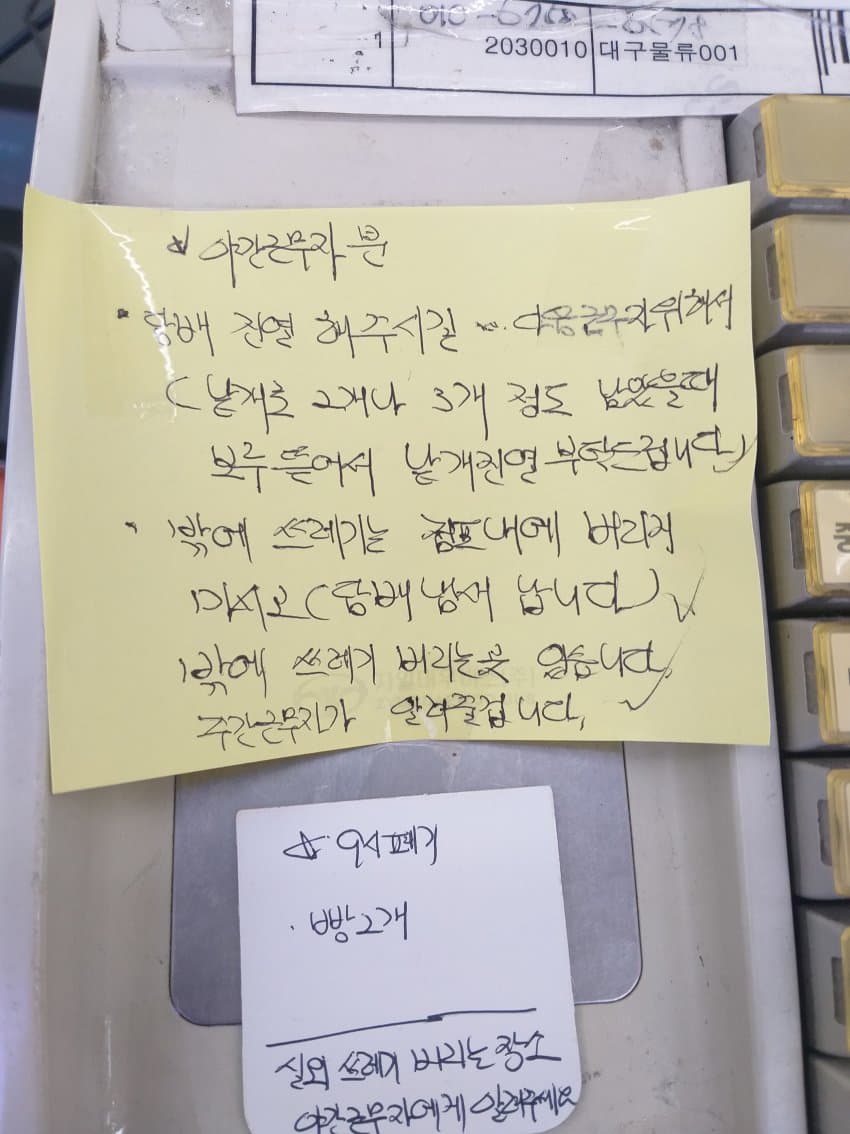 1
2030010 대구물류001
☆ 야간근무자 분
• 담배 진열 해주시길 ... 다음근무자위해서
( 낱개로 2개나 3개 정도 남았을때
보루 뜯어서 낱개진열 부탁드립니다)
• 밖에 쓰레기는 점포내에 버리지
마시오(담배냄새 납니다)
밖에 쓰레기 버리는곳 있습니다.
주간근무자가 알려줄겁니다.
☆ 9시폐기
· 빵2개
실외 쓰레기 버리는 장소
야간근무자에게 알려주세요